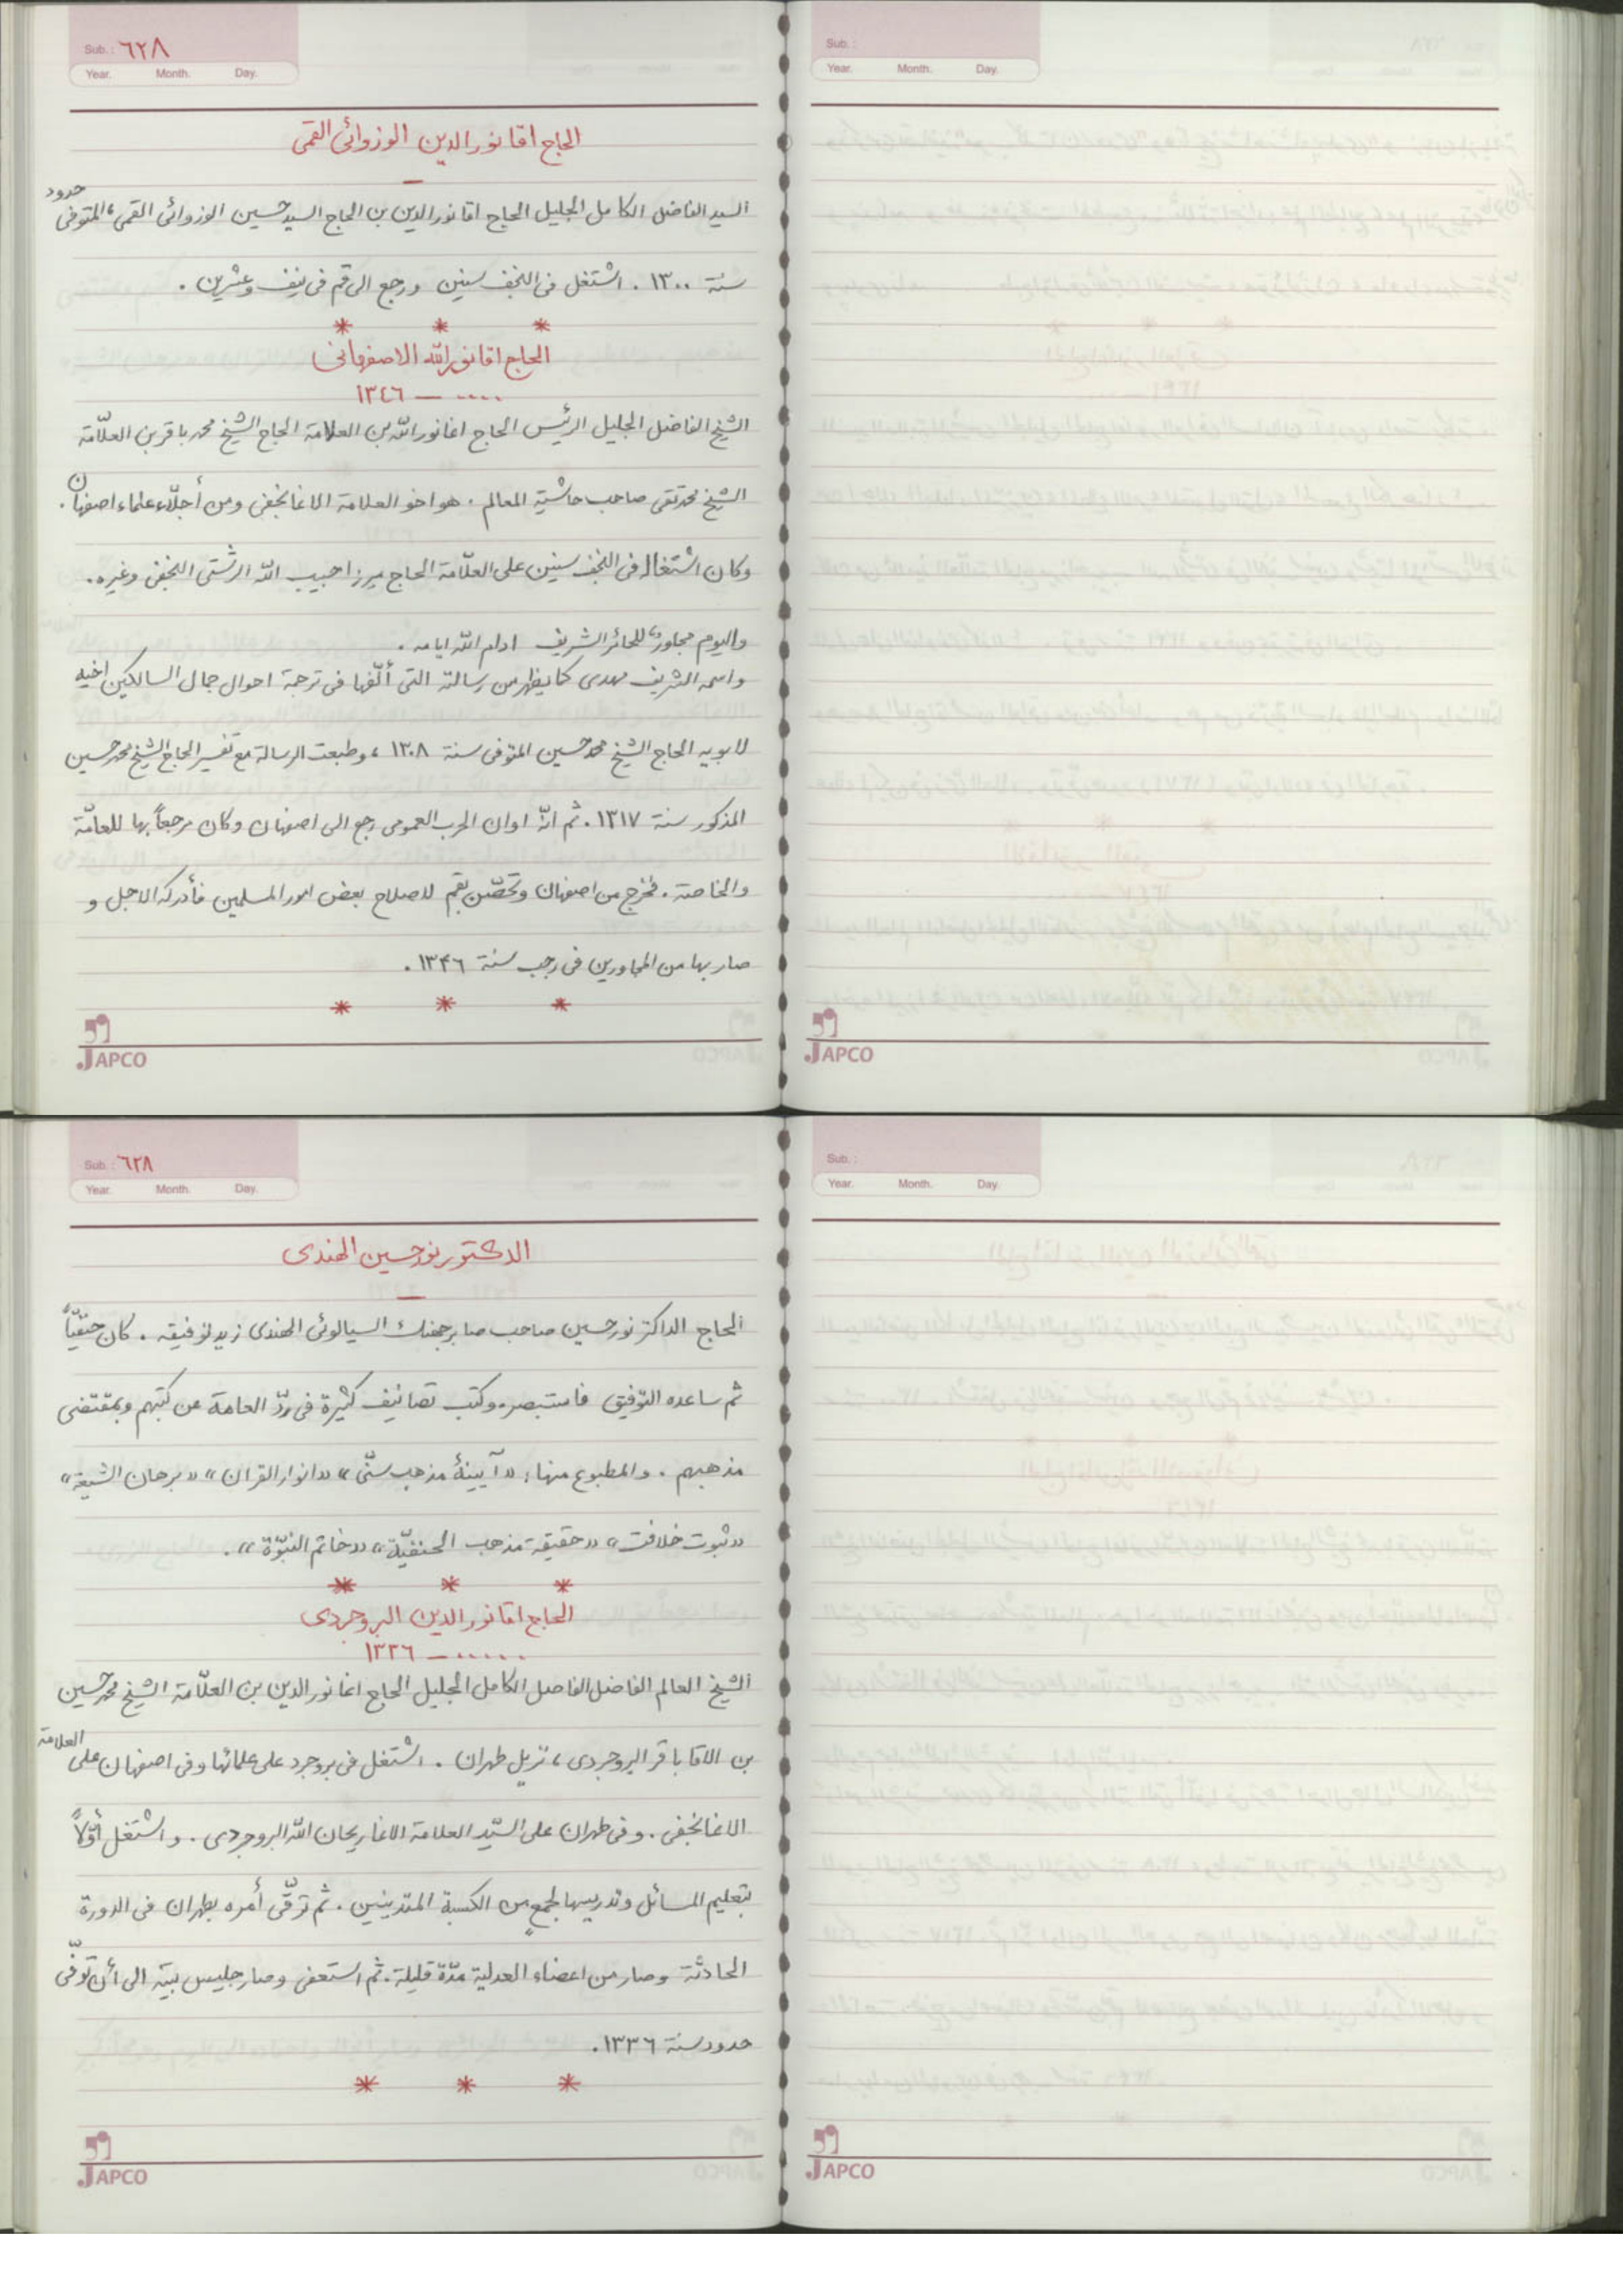 Sub.: ٦٢٨
Year. Month. Day.
الحاج اقا نور الدين الوزوائى القمى
السيد الفاضل الكامل الجليل الحاج اقا نور الدين بن الحاج السيد حسين الوزوائى القمى، المتوفى حدود
سنة ١٣٠٠. اشتغل فى النجف سنين ورجع الى قم فى نيف وعشرين.
* * *
الحاج اقا نور الله الاصفهانى
.... — ١٣٤٦
الشيخ الفاضل الجليل الرئيس الحاج اغا نور الله بن العلامة الحاج الشيخ محمد باقر بن العلّامة
الشيخ محمد تقى صاحب حاشية المعالم. هو اخو العلامة الاغا نجفى ومن أجلّاء علماء اصفهان.
وكان اشتغاله فى النجف سنين على العلّامة الحاج ميرزا حبيب الله الرشتى النجفى وغيره.
واليوم مجاور للحائر الشريف ادام الله ايامه.
واسمه الشريف مهدى كما يظهر من رسالته التى ألّفها فى ترجمة احوال جمال السالكين اخيه
لابويه الحاج الشيخ محمد حسين المتوفى سنة ١٣٠٨، وطبعت الرسالة مع تفسير الحاج الشيخ محمد حسين
المذكور سنة ١٣١٧. ثم انّه اوان الحرب العمومى رجع الى اصفهان وكان مرجعاً بها للعامّة
والخاصة. فخرج من اصفهان وتحصّن بقم لاصلاح بعض امور المسلمين فأدركه الاجل و
صار بها من المجاورين فى رجب سنة ١٣۴٦.
* * *
JAPCO
Sub.:
Year. Month. Day.
JAPCO
Sub.: ٦٢٨
Year. Month. Day.
الدكتور نور حسين الهندى
الحاج الداكتر نور حسين صاحب صابر جهنك السيالوئى الهندى زيد توفيقه. كان حنفيّاً
ثم ساعده التوفيق فاستبصر. وكتب تصانيف كثيرة فى ردّ العامة عن كتبهم وبمقتضى
مذهبهم. والمطبوع منها: «آيينهٔ مذهب سنّى» «انوار القرآن» «برهان الشيعة»
«ثبوت خلافت» «حقيقة مذهب الحنفيّة» «خاتم النبوّة».
* * *
الحاج اقا نور الدين البروجردى
..... — ١٣٣٦
الشيخ العالم الفاضل الفاصل الكامل الجليل الحاج اغا نور الدين بن العلّامة الشيخ محمد حسين
بن الاقا باقر البروجردى، نزيل طهران. اشتغل فى بروجرد على علمائها وفى اصفهان على العلامة
الاغا نجفى. وفى طهران على السيّد العلامة الاغا ريحان الله البروجردى. واشتغل أوّلاً
بتعليم المسائل وتدريسها لجمعٍ من الكسبة المتدينين. ثم ترقّى أمره بطهران فى الدورة
الحادثة وصار من اعضاء العدلية مدّة قليلة. ثم استعفى وصار جليس بيته الى أن توفّى
حدود سنة ١٣٣٦.
* * *
JAPCO
Sub.:
Year. Month. Day.
JAPCO